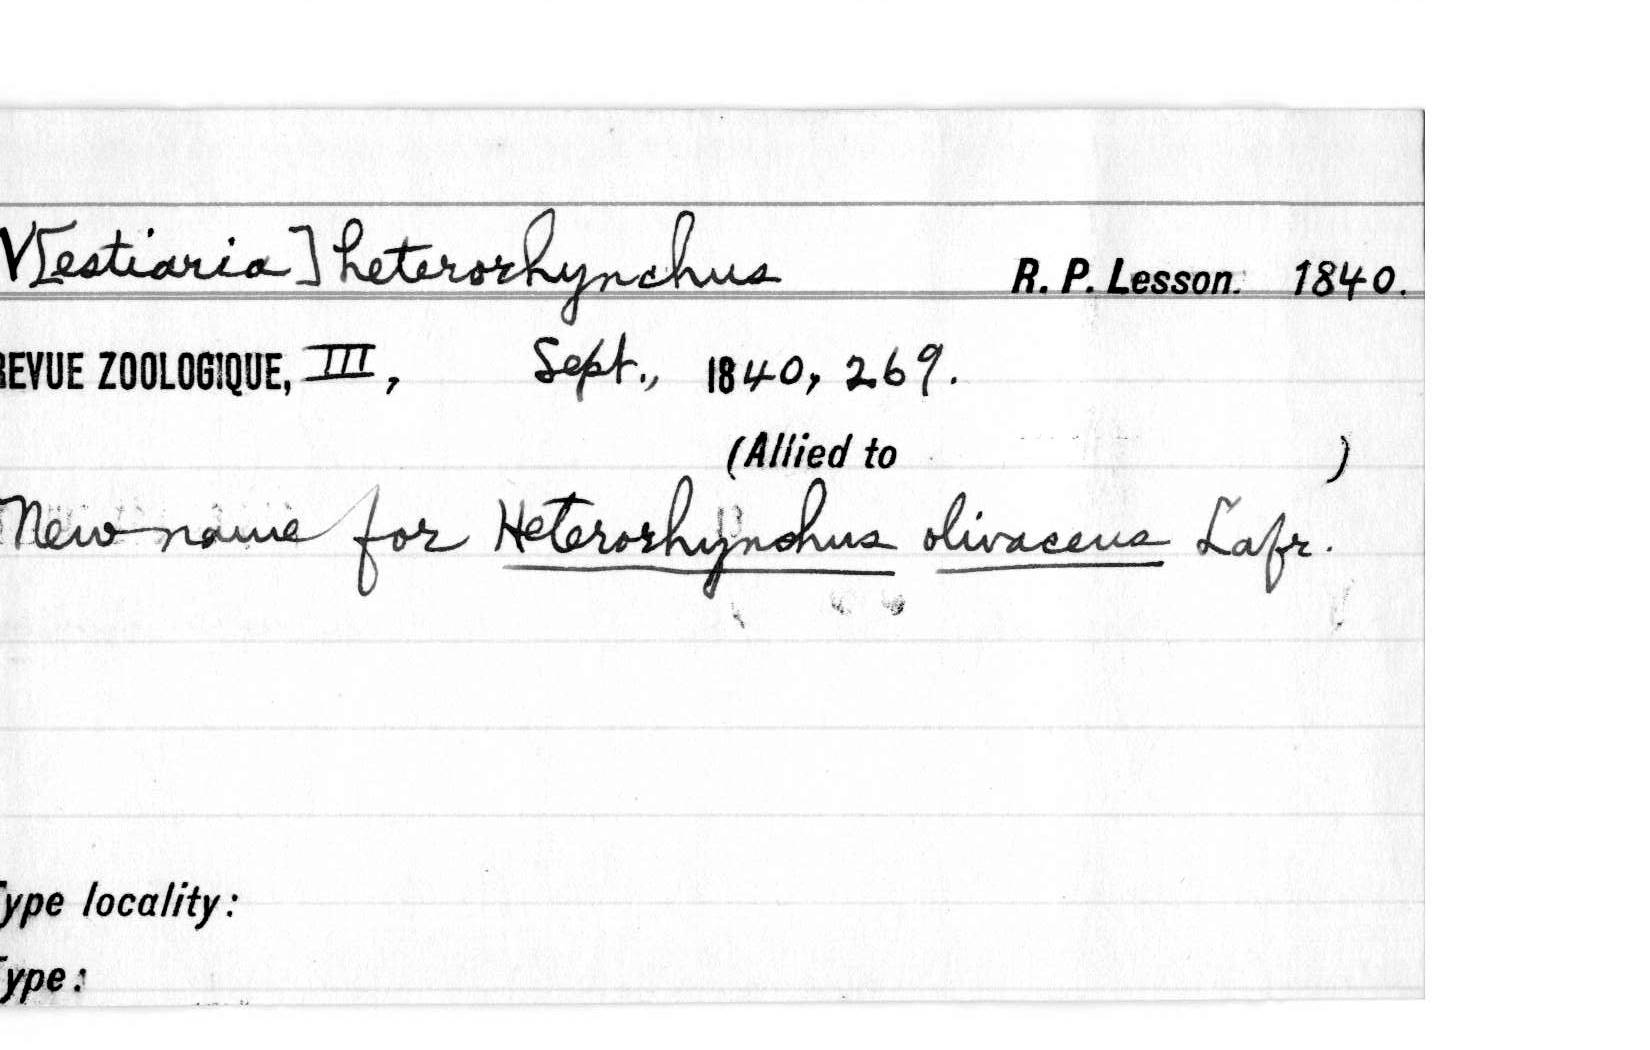 V[estiaria] heterorhynchus R. P. Lesson. 1840.
REVUE ZOOLOGIQUE, III, Sept., 1840, 269.
(Allied to )
New name for Heterorhynchus olivaceus Lafr.
Type locality:
Type: